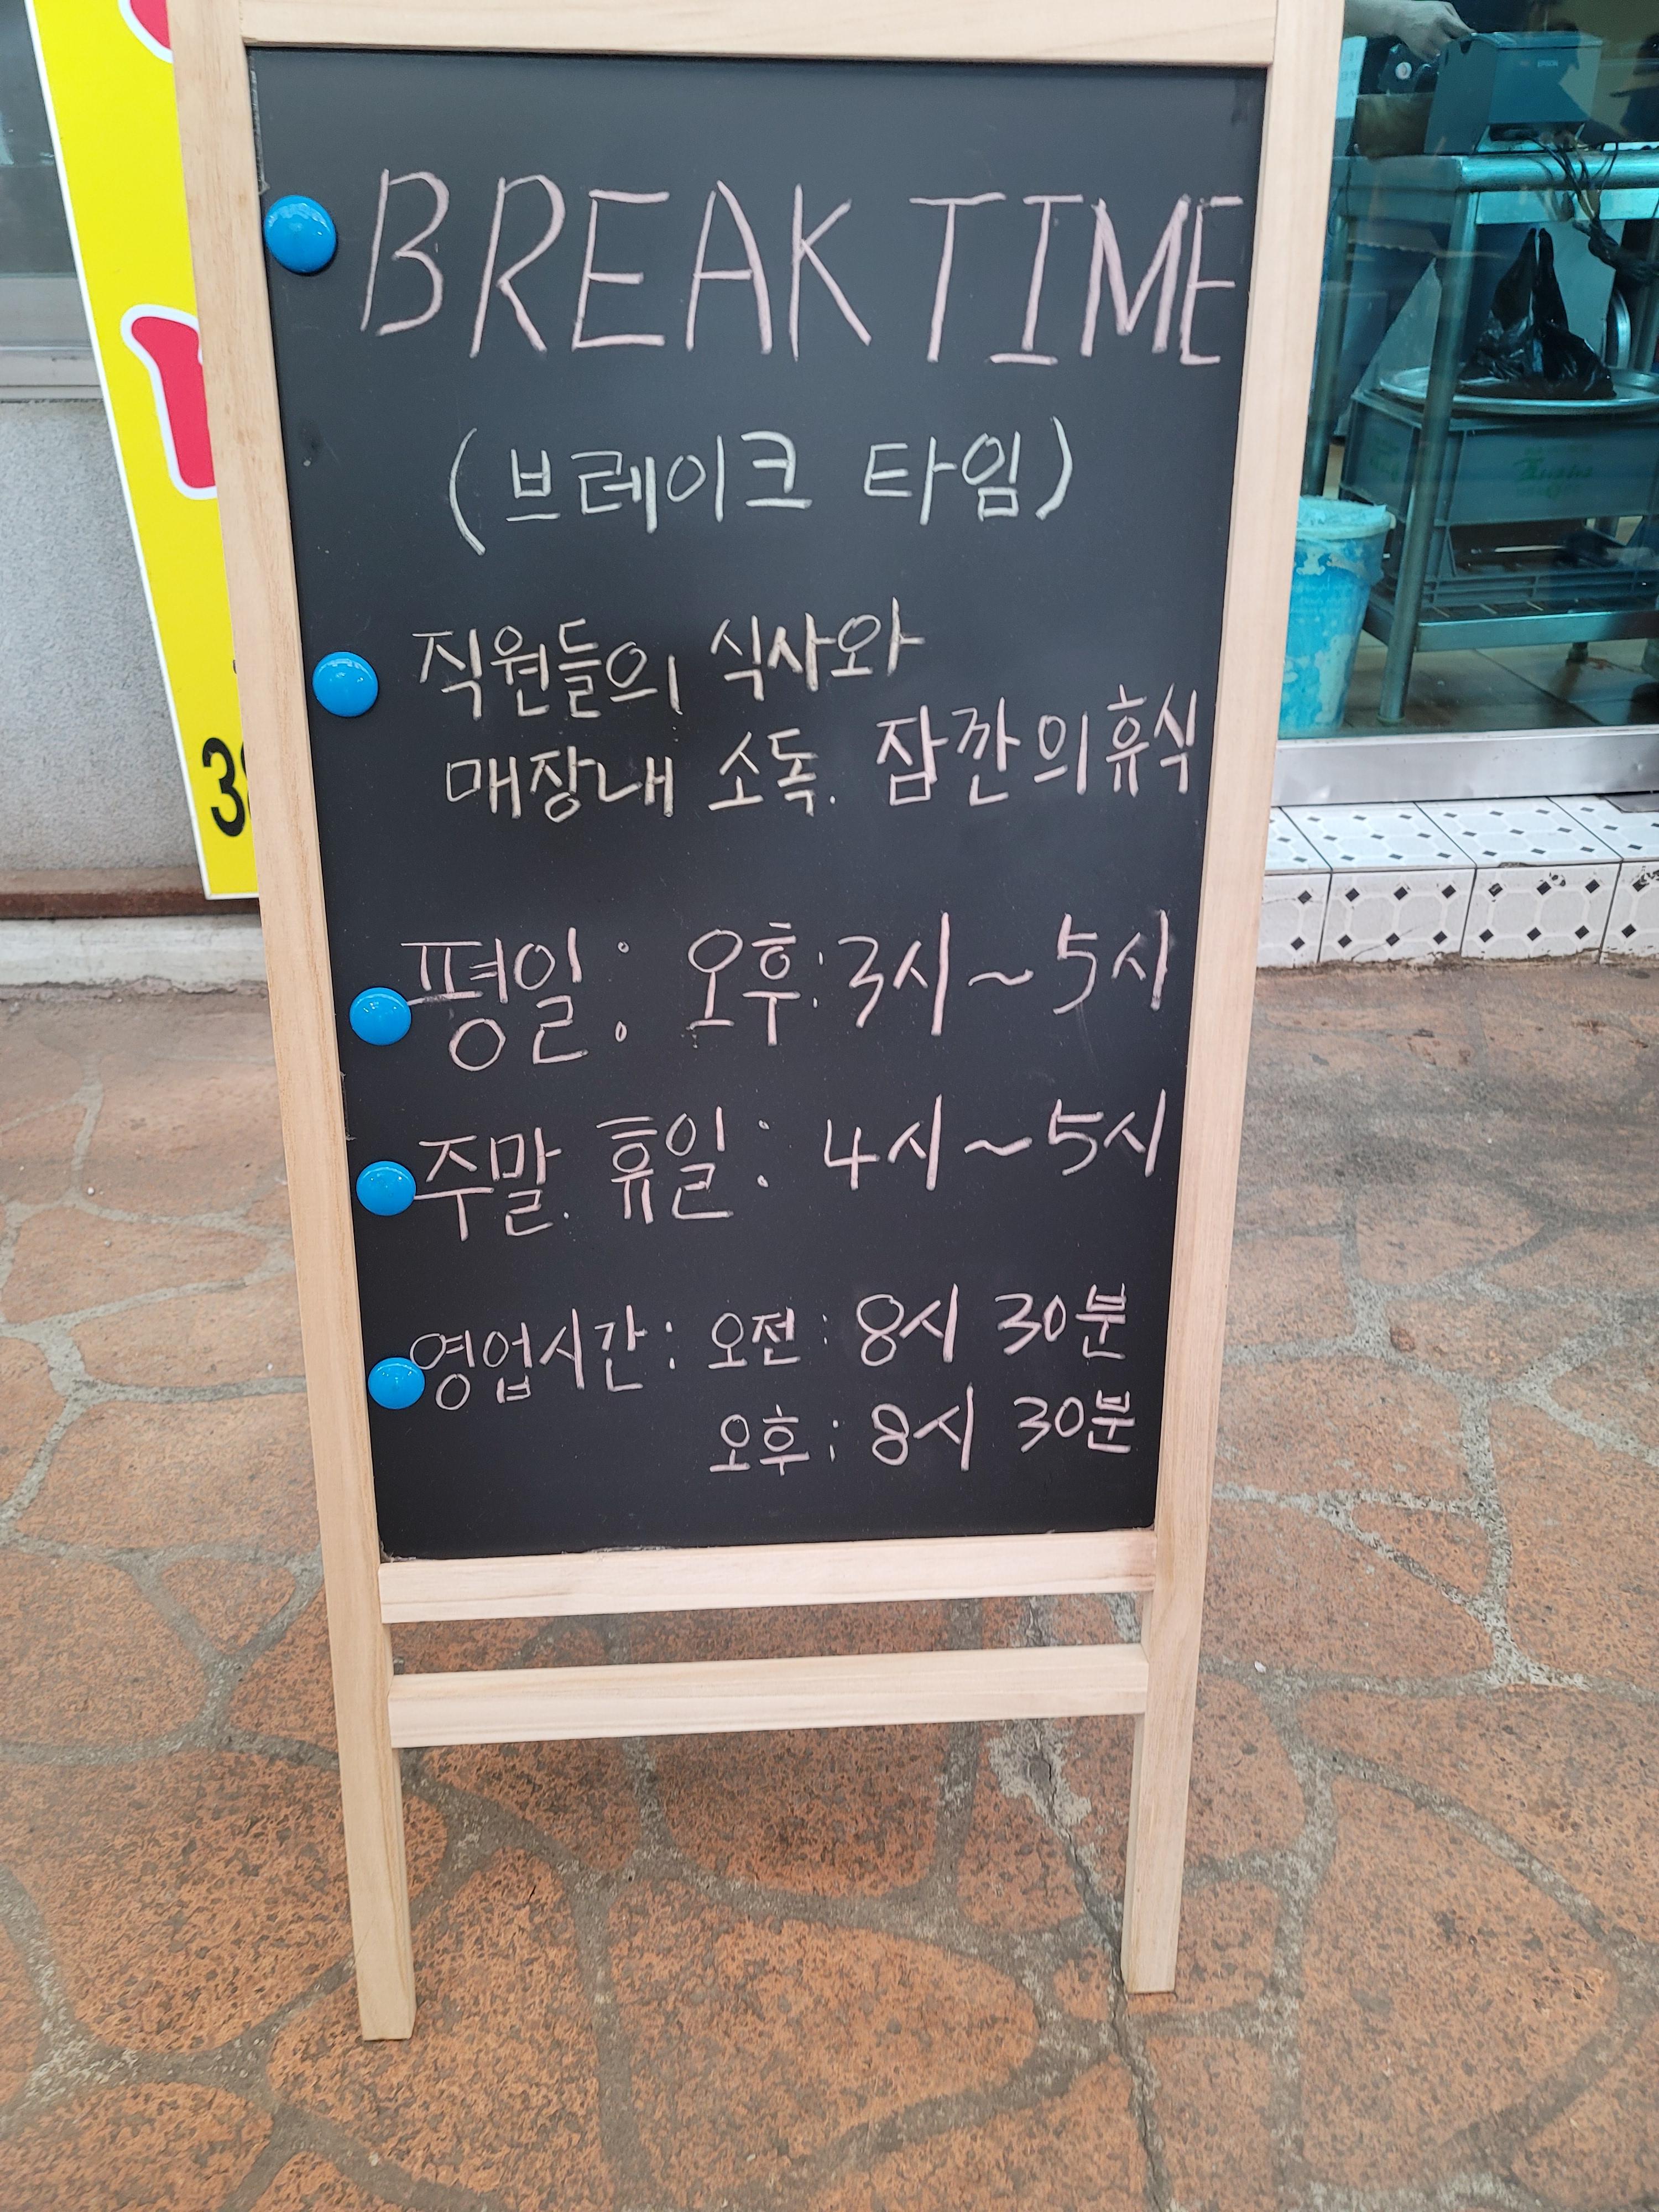 BREAK TIME
(브레이크 타임)
직원들의 식사와
매장내 소독. 잠깐의 휴식
평일: 오후: 3시~5시
주말. 휴일: 4시~5시
영업시간: 오전: 8시 30분
오후: 8시 30분
EPSON